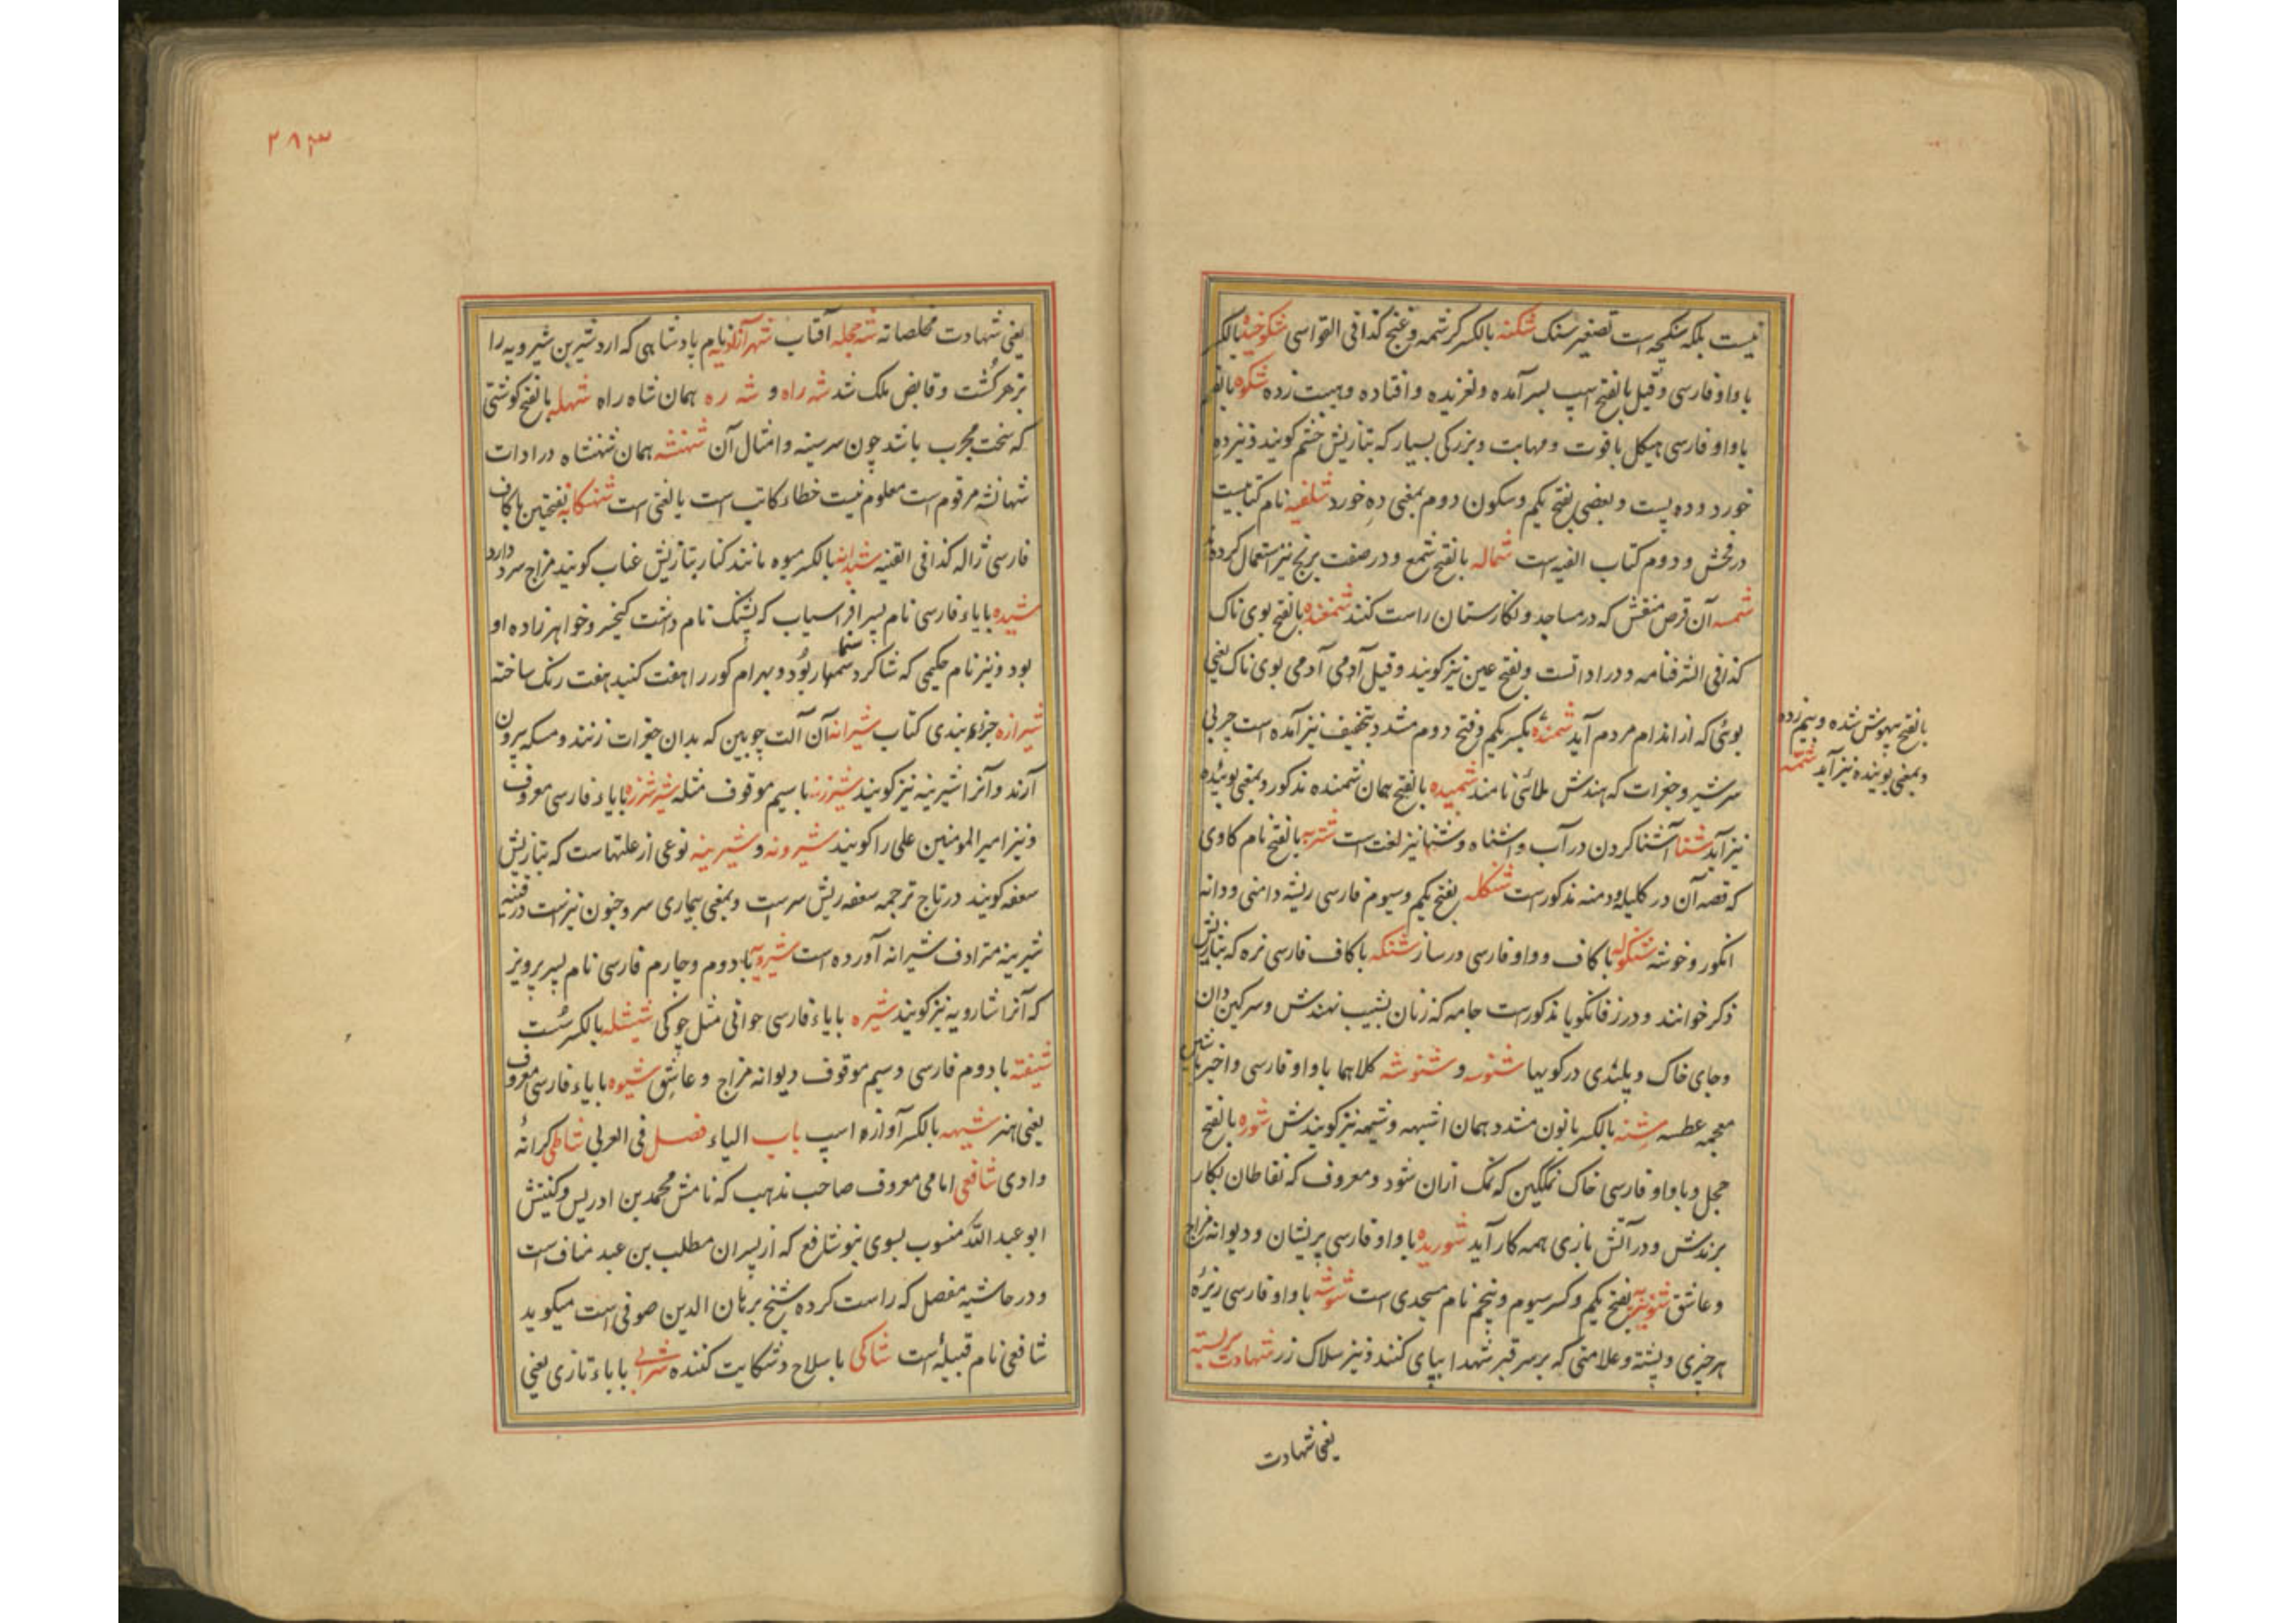 نیست بلکه سنکچه است تصغیر سنک شکنه بالکسر کرشمه و غنج کذا فی القواسی شکوخیده بالکسر
با واو فارسی و قیل بالفتح اسپ بسر آمده و لغزیده و افتاده و هیبت زده شکوه بالضم
با واو فارسی هیکل با قوت و مهابت و بزرکی بسیار که بتازیش خشم کویند و نیز ده
خورد و ده پست و بعضی بفتح یکم و سکون دوم بمعنی ده خورد شلفیه نام کتابیست
در فحش و دوم کتاب الفیه است شماله بالفتح شمع و در صفت برنج نیز استعمال کرده
شمسه آن قرص منقش که در مساجد و نکارستان راست کنند شمغنده بالفتح بوی ناک
کذا فی الشرفنامه و در ادا تست و بفتح عین نیز کویند و قیل آدمی آدمی بوی ناک یعنی
بوئی که از اندام مردم آید شمنده بکسر یکم و فتح دوم مشدد و بتخفیف نیز آمده است چربی
سر شیر و جغرات که هندش ملائی نامند شمیده بالفتح همان شمنده مذکور و بمعنی بوینده
نیز آید شنا آشنا کردن در آب و اشناه و شنها نیز لغت است شنزبه بالفتح نام کاوی
که قصه آن در کلیله و دمنه مذکور است شنکله بفتح یکم و سیوم فارسی ریشه دامنی و دانه
انکور و خوشه شنکوله با کاف و واو فارسی در ساز شنکه با کاف فارسی نره که بتازیش
ذکر خوانند و در زفانکویا مذکور است جامه که زنان بشیب نهندش و سرکین دان
و جای خاک و پلیدی در کویها شنوسه و شنوشه کلاهما با واو فارسی و اخیر باشین
معجمه عطسه شنه بالکسر با نون مشدد همان اشیهه و شیهه نیز کویندش شوره بالفتح
خجل و با واو فارسی خاک نمکین که نمک ازان شود و معروف که نفاطان بکار
برندش و در آتش بازی همه کار آید شوریده با واو فارسی پریشان و دیوانه مزاج
و عاشق شونیزیه بفتح یکم و کسر سیوم و پنجم نام مسجدی است شوشه با واو فارسی ریزهٔ
هر چیزی و پشته و علامتی که بر سر قبر شهدا بپای کنند و نیز سلاک زر شهادت بربسته
یعنی شهادت
بالفتح بیهوش شده و بیم زده
و بمعنی بوینده نیز آید شمته
۲۸۳
یعنی شهادت مخلصانه شه حجله آفتاب شهرآزادویه نام پادشاهی که اردشیر بن شیرویه را
بزهر کشت و قابض ملک شد شه راه و شه ره همان شاه راه شهله بالفتح کوشتی
که سخت مچرب باشد چون سر سینه و امثال آن شهنشه همان شهنشاه در ادات
شهانشه مرقوم است معلوم نیست خطاء کاتب است یا لغتی است شهنکانه بفتحتین با کاف
فارسی ژاله کذا فی القنیه شیلانه بالکسر میوه مانند کنار بتازیش عناب کویند مزاج سرد دارد
شیده با یاء فارسی نام پسر افراسیاب که پشنک نام داشت کیخسرو خواهرزاده او
بود و نیز نام حکیمی که شاکرد سمنمار بود و بهرام کور را هفت کنبد هفت رنک ساخته
شیرازه جزء بندی کتاب شیرانه آن آلت چوبین که بدان جغرات زنند و مسکه بیرون
آرند و آنرا شیرینه نیز کویند شیرزنه با سیم موقوف مثله شیر شرزه با یاء فارسی معروف
و نیز امیر المومنین علی را کویند شیرونه و شیرینه نوعی از علتهاست که بتازیش
سعفه کویند در تاج ترجمه سعفه ریش سر است و بمعنی بیماری سر و جنون نیز است در قنیه
شیرینه مترادف شیرانه آورده است شیرویه با دوم و چارم فارسی نام پسر پرویز
که آنرا شارویه نیز کویند شیره با یاء فارسی خوانی مثل چوکی شیشله بالکسر سست
شیفته با دوم فارسی و سیم موقوف دیوانه مزاج و عاشق شیوه با یاء فارسی معروف
یعنی هنر شیهه بالکسر آوازه اسپ باب الیاء فصل فی العربی شاطی کرانه
وادی شافعی امامی معروف صاحب مذهب که نامش محمد بن ادریس و کنیتش
ابو عبد الله منسوب بسوی بنو شافع که از پسران مطلب بن عبد مناف است
و در حاشیه مفصل که راست کرده شیخ برهان الدین صوفی است میکوید
شافعی نام قبیله است شاکی با سلاح و شکایت کننده شرابی با باء تازی یعنی